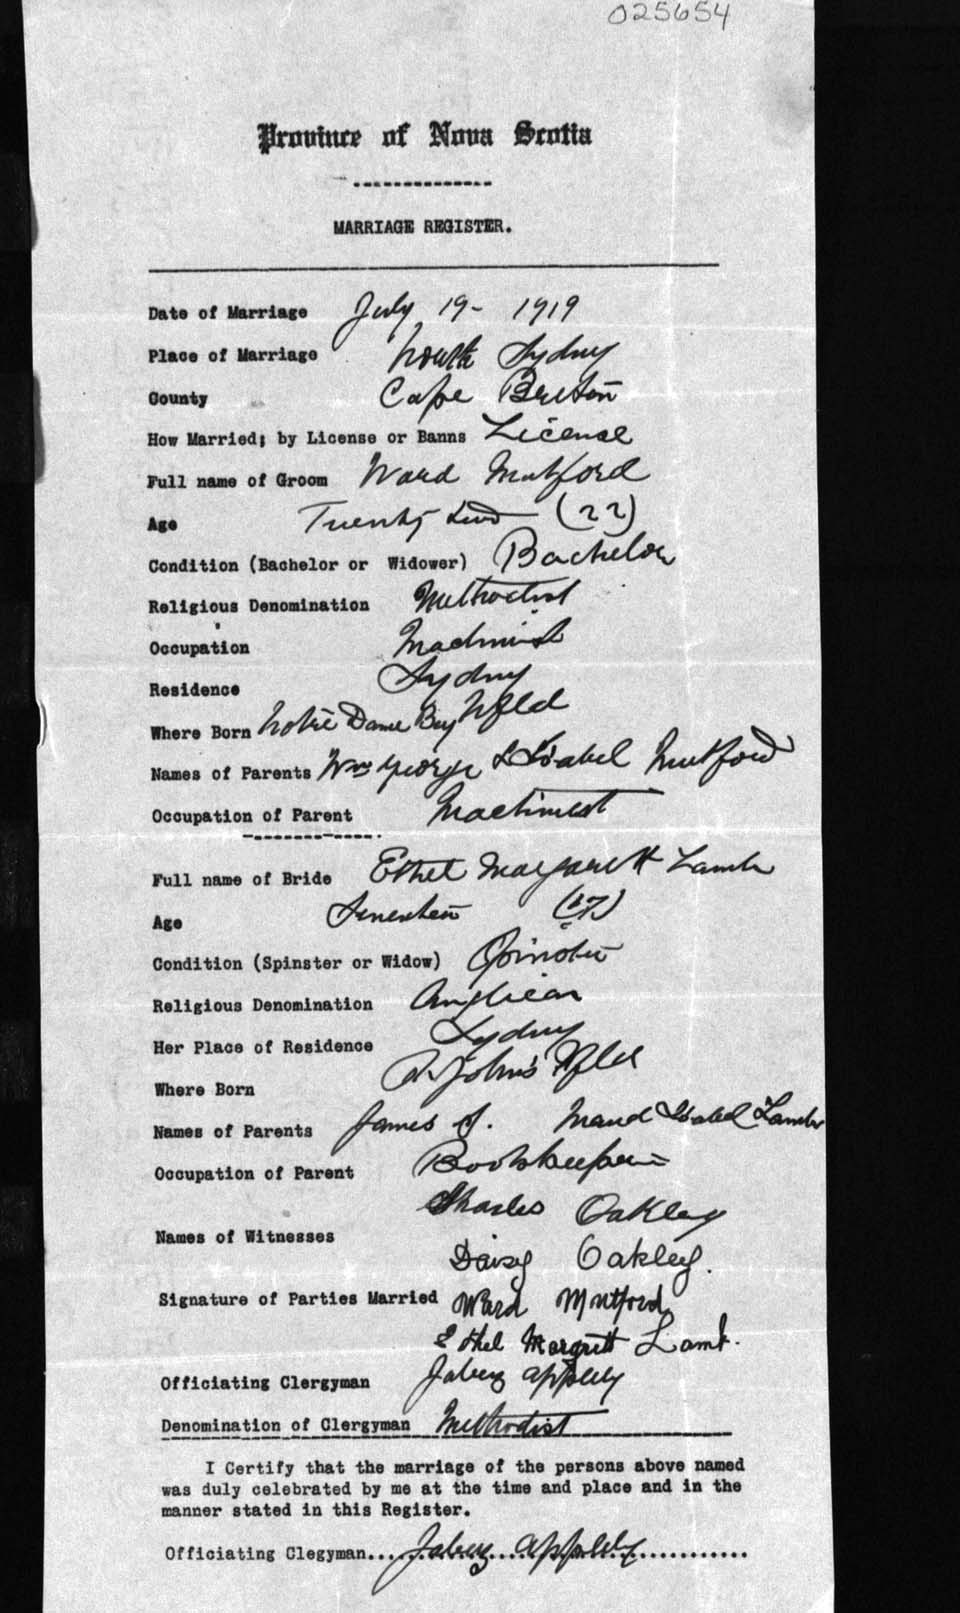 025654
Province of Nova Scotia
--------------
MARRIAGE REGISTER.
Date of Marriage July 19- 1919
Place of Marriage North Sydney
County Cape Breton
How Married; by License or Banns License
Full name of Groom Ward Mutford
Age Twenty two (22)
Condition (Bachelor or Widower) Bachelor
Religious Denomination Methodist
Occupation Machinist
Residence Sydney
Where Born Notre Dame Bay Nfld
Names of Parents Wm George & Isabel Mutford
Occupation of Parent Machinist
Full name of Bride Ethel Margarett Lamb
Age Seventeen (17)
Condition (Spinster or Widow) Spinster
Religious Denomination Anglican
Her Place of Residence Sydney
Where Born St. John's Nfld
Names of Parents James J. Maud Isabel Lamb
Occupation of Parent Bookkeeper
Charles Oakley
Names of Witnesses
Daisy Oakley.
Signature of Parties Married Ward Mutford
Ethel Margrett Lamb.
Officiating Clergyman Jabez Appleby
Denomination of Clergyman Methodist
I Certify that the marriage of the persons above named
was duly celebrated by me at the time and place and in the
manner stated in this Register.
Officiating Clegyman.... Jabez Appleby